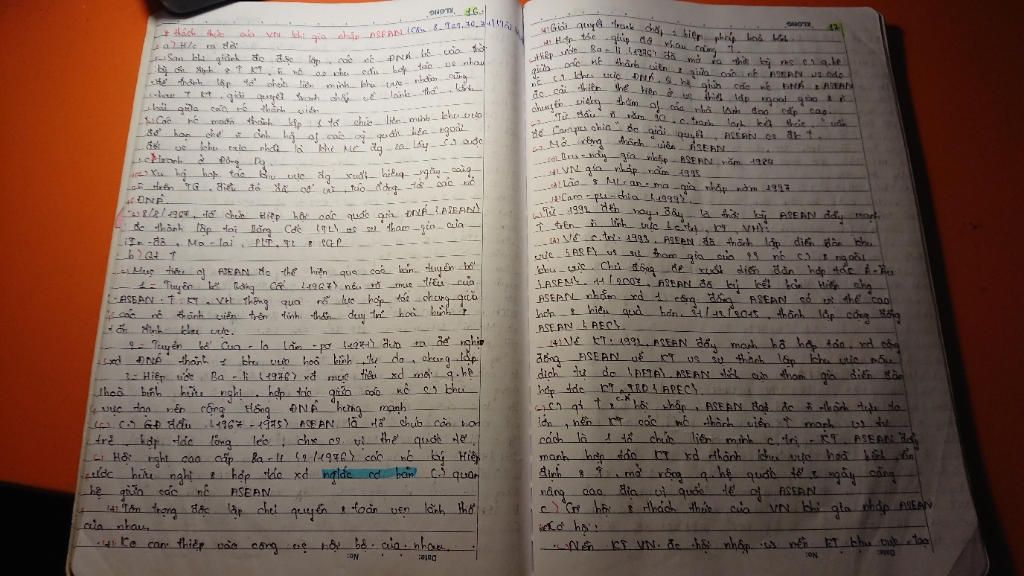 16.
* Thách thức của VN khi gia nhập ASEAN
a) H/c ra đời
Sau khi giành đc độc lập, các nc ĐNÁ bc vào thời
kỳ ổn định & ↑ KT, n nc có nhu cầu hợp tác vs nhau
để thành lập tổ chức liên minh khu vực nhằm cùng
nhau ↑ KT, giải quyết tranh chấp về lãnh thổ
giữa các nc thành viên
Các nc muốn thành lập 1 tổ chức liên minh khu vực
để hạn chế ả hưởng of các cg quốc bên ngoài
đối vs khu vực nhất là khi Mĩ đg sa lầy cuộc
c.tranh ở Đông Dg.
Xu hg hợp tác khu vực đg xuất hiện ngày càng
n trên TG, điều đó đã cổ vũ, tác động tới các nc
ĐNÁ.
8/8/1967, tổ chức Hiệp hội các quốc gia ĐNÁ (ASEAN)
đc thành lập tại Băng Cốc (TL) vs sự tham gia của
In-đô, Ma-lai, PLT, TL & SGP
b) Qt ↑
Mục tiêu of ASEAN đc thể hiện qua các bản tuyên bố
1 = Tuyên bố Băng Cốc (1967) nêu rõ mục tiêu của
ASEAN: ↑ KT, VH thông qua nỗ lực hợp tác chung giữa
các nc thành viên trên tinh thần duy trì hoà bình &
ổn định khu vực.
2 = Tuyên bố Cua-la Lăm-pơ (1971) đưa ra đề nghị
xd ĐNÁ thành 1 khu vực hoà bình, tự do, trung lập
3 = Hiệp ước Ba-li (1976) xd mục tiêu xd mối q.hệ
hoà bình hữu nghị, hợp tác giữa các nc khu
vực tạo nên cộng đồng ĐNÁ hùng mạnh
GĐ đầu (1967 - 1975) ASEAN là tổ chức còn non
trẻ, hợp tác lỏng lẻo, chx có vị thế quốc tế.
Hội nghị cao cấp Ba-li (2/1976) các nc ký Hiệp
ước hữu nghị & hợp tác xd ngtắc cơ bản quan
hệ giữa các nc ASEAN
Tôn trọng độc lập chủ quyền & toàn vẹn lãnh thổ
của nhau
Ko can thiệp vào công việc nội bộ của nhau
Date: No:
17.
Giải quyết tranh chấp = biện pháp hoà bình
Hợp tác giúp đỡ nhau cùng ↑
Hiệp ước Ba-li (1976) đã mở ra thời kỳ ms q.hệ
giữa các nc thành viên & giữa các nc ASEAN vs các
nc khu vực ĐNÁ. Q.hệ giữa các nc ĐNÁ & ASEAN
đc cải thiện thể hiện ở vc thiết lập ngoại giao &
chuyến viếng thăm of các nhà lãnh đạo cấp cao
Từ đầu n năm 90, c.tranh lạnh kết thúc, vấn
đề Campuchia đc giải quyết, ASEAN có đk ↑
Mở rộng thành viên ASEAN
Bru-nây gia nhập ASEAN năm 1984
VN gia nhập năm 1995
Lào & Mi-an-ma gia nhập năm 1997
Cam-pu-chia (1999)
Từ 1992 đến nay: đây là thời kỳ ASEAN đẩy mạnh
↑ trên n lĩnh vực (c.trị, KT VH):
Về c.trị: 1993, ASEAN đã thành lập diễn đàn khu
vực (ARF) vs sự tham gia của 23 nc & ngoài
khu vực. Chủ động đề xuất diễn đàn hợp tác Á-Âu
(ASEM). 11/2007, ASEAN đã ký kết bản Hiến chg
ASEAN nhằm xd 1 cộng đồng ASEAN có vị thế cao
hơn & hiệu quả hơn. 31/12/2015, thành lập cộng đồng
ASEAN (AEC).
Về KT: 1992, ASEAN đẩy mạnh hđ hợp tác, xd cộng
đồng ASEAN về KT vs sự thành lập khu vực mậu
dịch tự do (AFTA). ASEAN tích cực tham gia diễn đàn
hợp tác KT - TBD (APEC).
qt ↑ & hội nhập, ASEAN đạt đc n thành tựu to
lớn, nền KT các nc thành viên ↑ mạnh vs tư
cách là 1 tổ chức liên minh c.trị - KT. ASEAN đẩy
mạnh hợp tác KT xd thành khu vực hoà bình ổn
định & ↑, mở rộng q.hệ quốc tế & ngày càng
nâng cao địa vị quốc tế of ASEAN
c) Cơ hội & thách thức của VN khi gia nhập ASEAN
Cơ hội:
Nền KT VN đc hội nhập vs nền KT khu vực
Date: No: